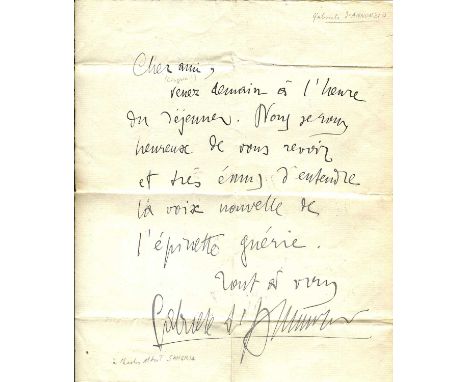 Gabriele D'ANNUNZIO
Cher ami,
venez demain à l'heure
du déjeuner. Nous serons
heureux de vous revoir
et très émus d'entendre
la voix nouvelle de
l'épinette guérie.
Tout à vous
Gabriele d'Annunzio
à Charles Albert